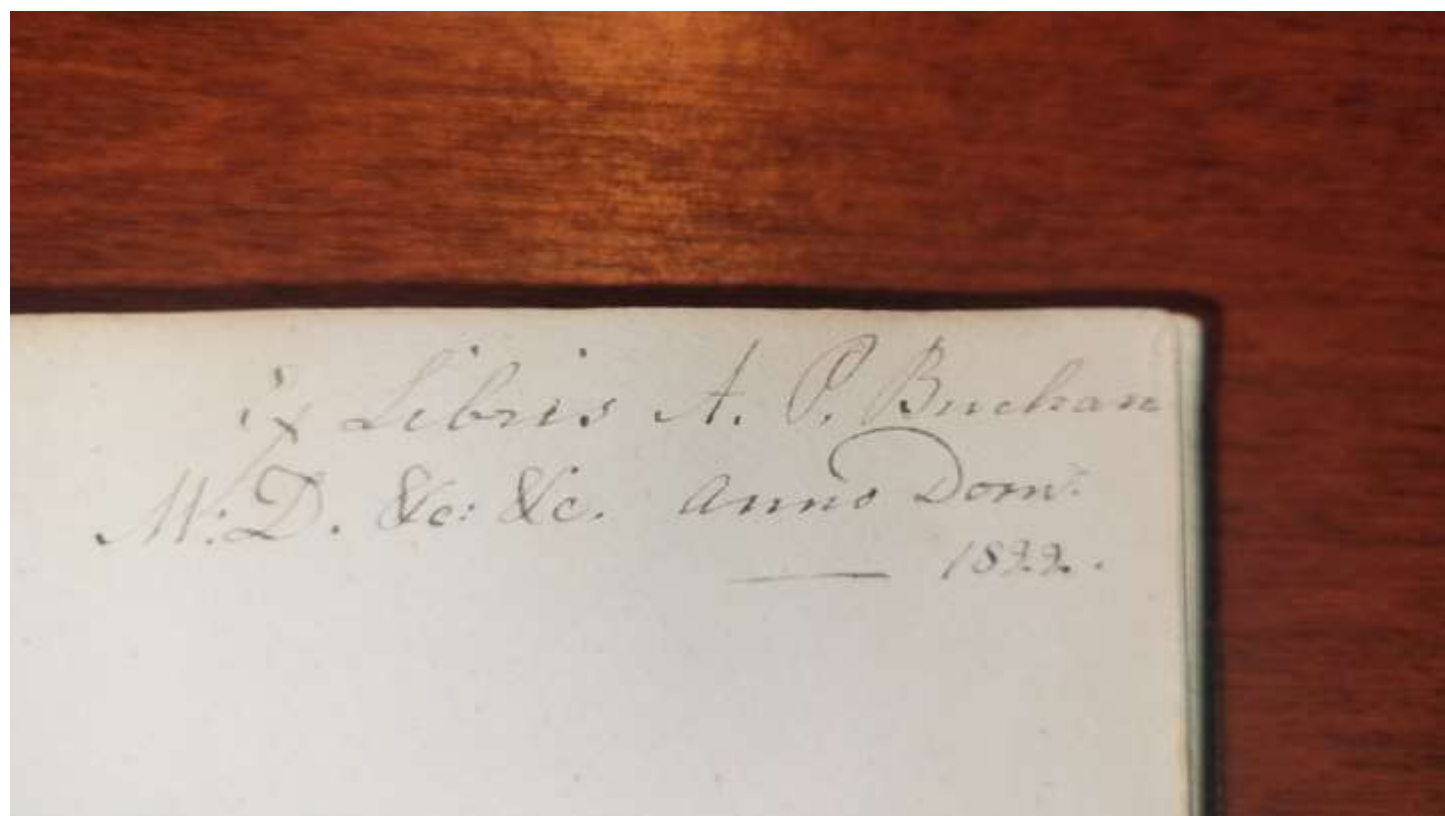 ix Libris A. P. Buchan
M: D. &c: &c. Anno Dom:
1822.